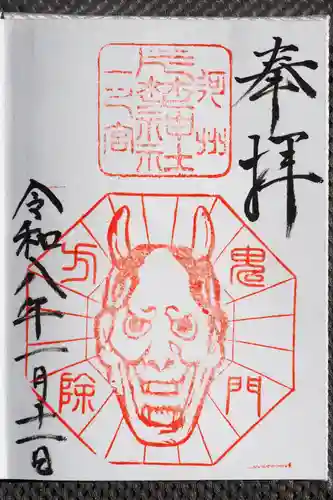 奉拝
河州
片埜神社
一之宮
鬼門
方除
令和八年一月十一日